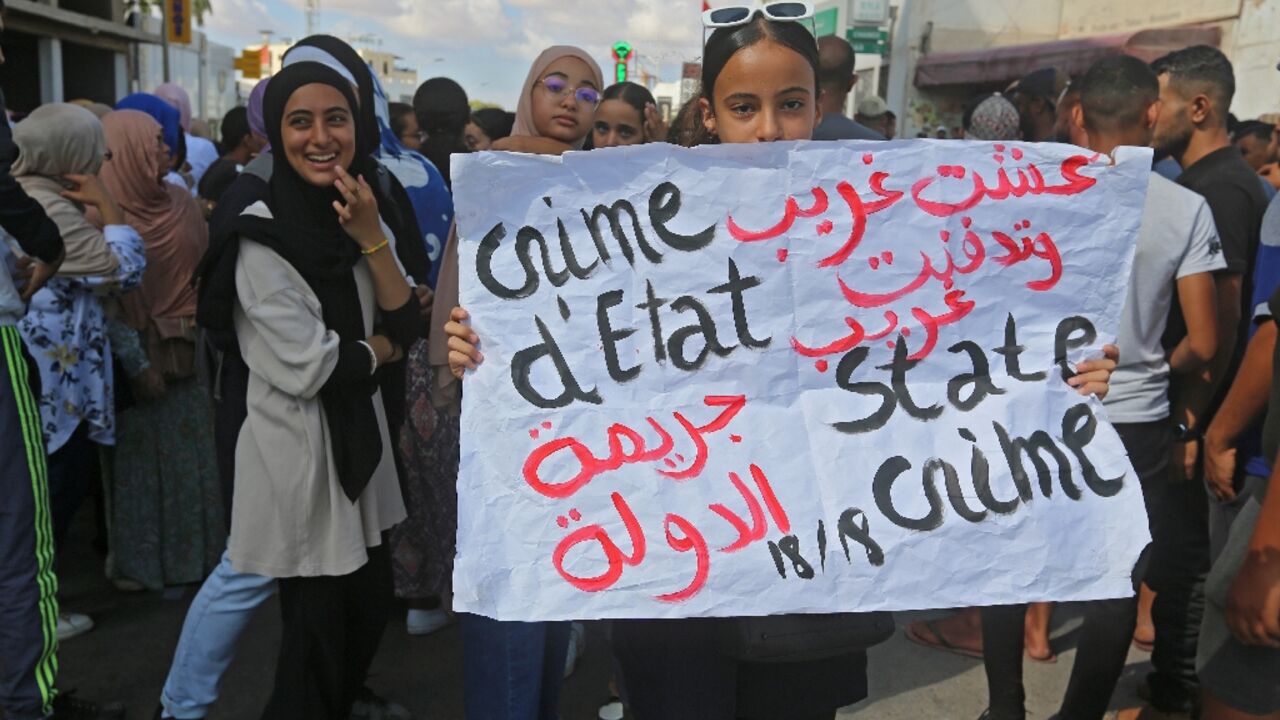 Crime
d'Etat
عشت غريب
وتدفنت
غريب
State
crime
جريمة
الدولة
18/18